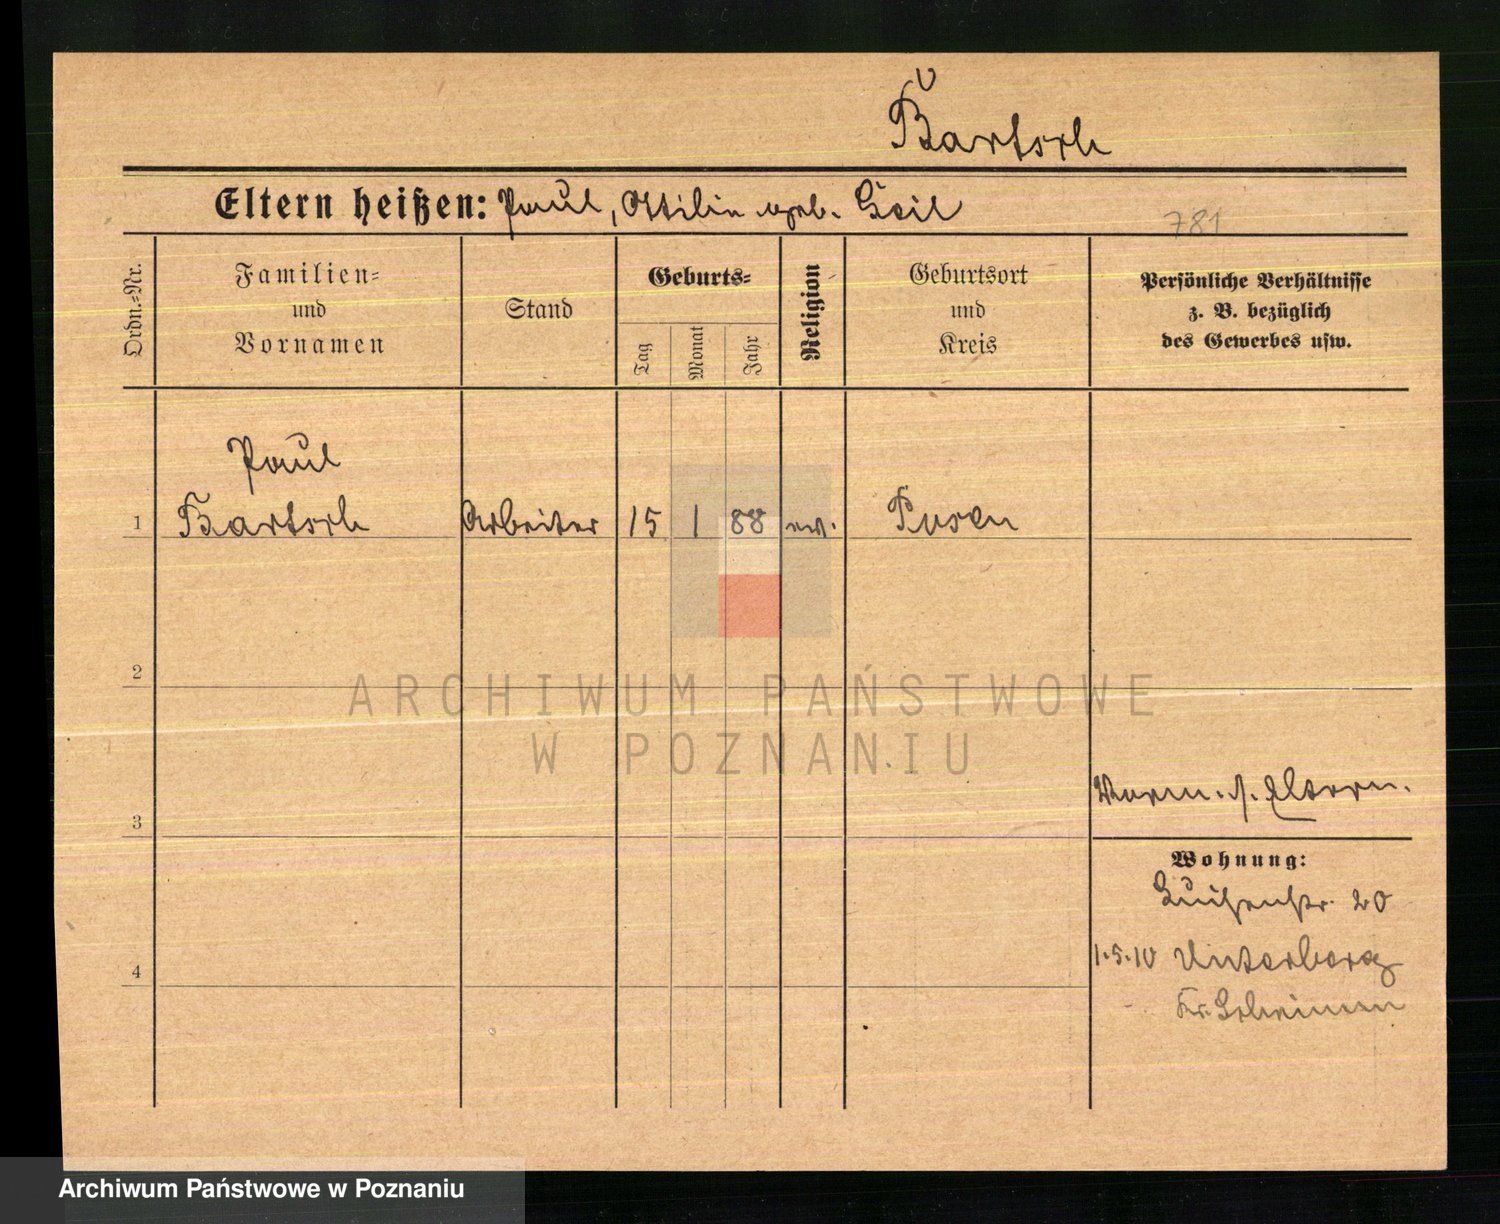 Bartsch
Eltern heißen: Paul, Ottilie geb. Geil
781
Ordn.=Nr.
Familien=
und
Vornamen
Stand
Geburts=
Tag
Monat
Jahr
Religion
Geburtsort
und
Kreis
Persönliche Verhältnisse
z. B. bezüglich
des Gewerbes usw.
Paul
1 Bartsch Arbeiter 15 1 88 ev. Posen
2
ARCHIWUM PAŃSTWOWE
W POZNANIU
Eltern.
3
Wohnung:
Luisenstr. 20
1.5.10 Unterberg
4
Kr. Schrimm
Archiwum Państwowe w Poznaniu